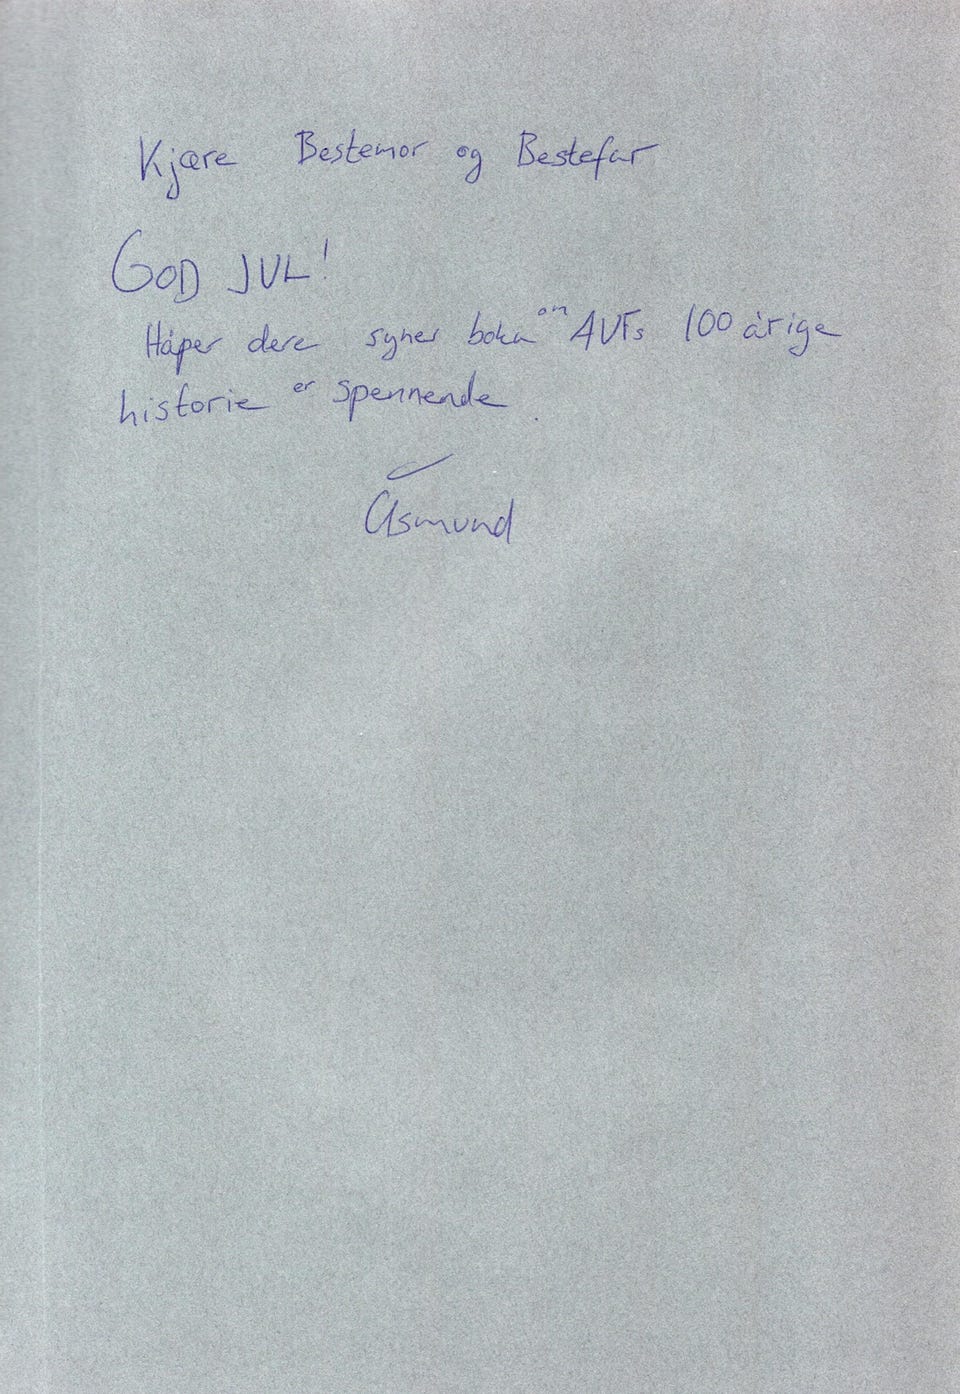 Kjære Bestemor og Bestefar
GOD JUL!
Håper dere synes boka om AUFs 100 årige
historie er spennende.
Åsmund